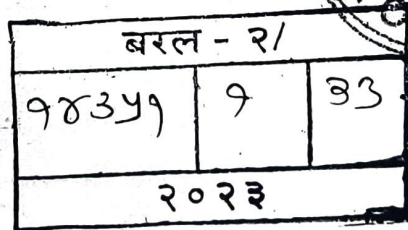 बरल - २/
१४३५१ १ ३३
२०२३